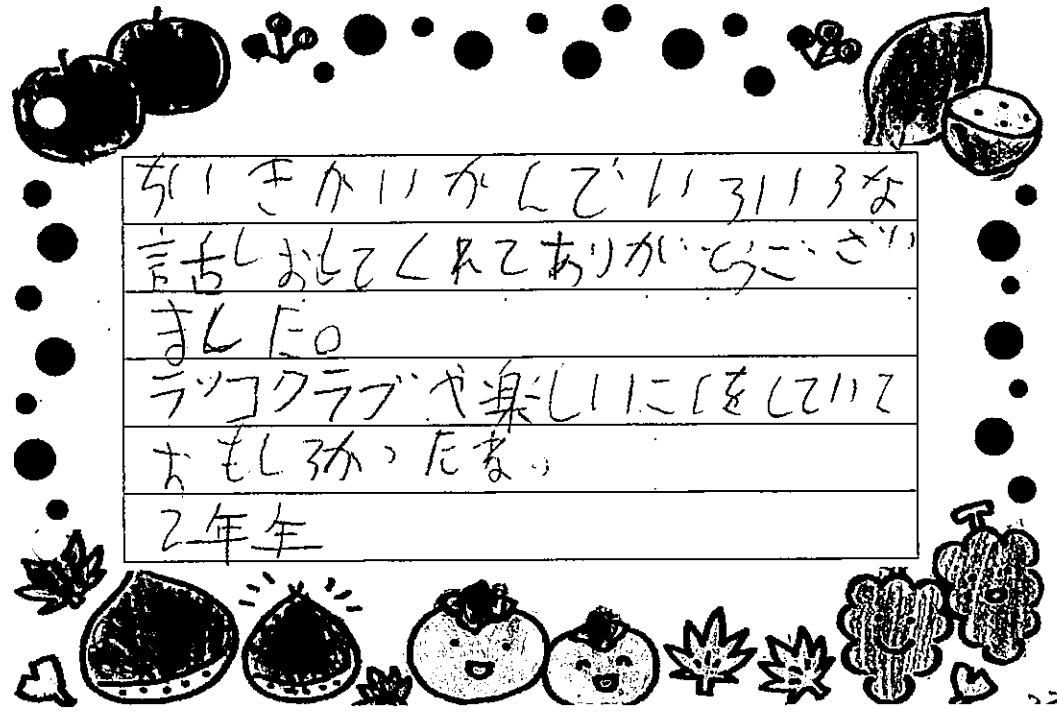 ちいきかいかんでいろいろな
話しおしてくれてありがとうござい
ました。
ラッコクラブや楽しいことをしていて
おもしろかったな。
2年生